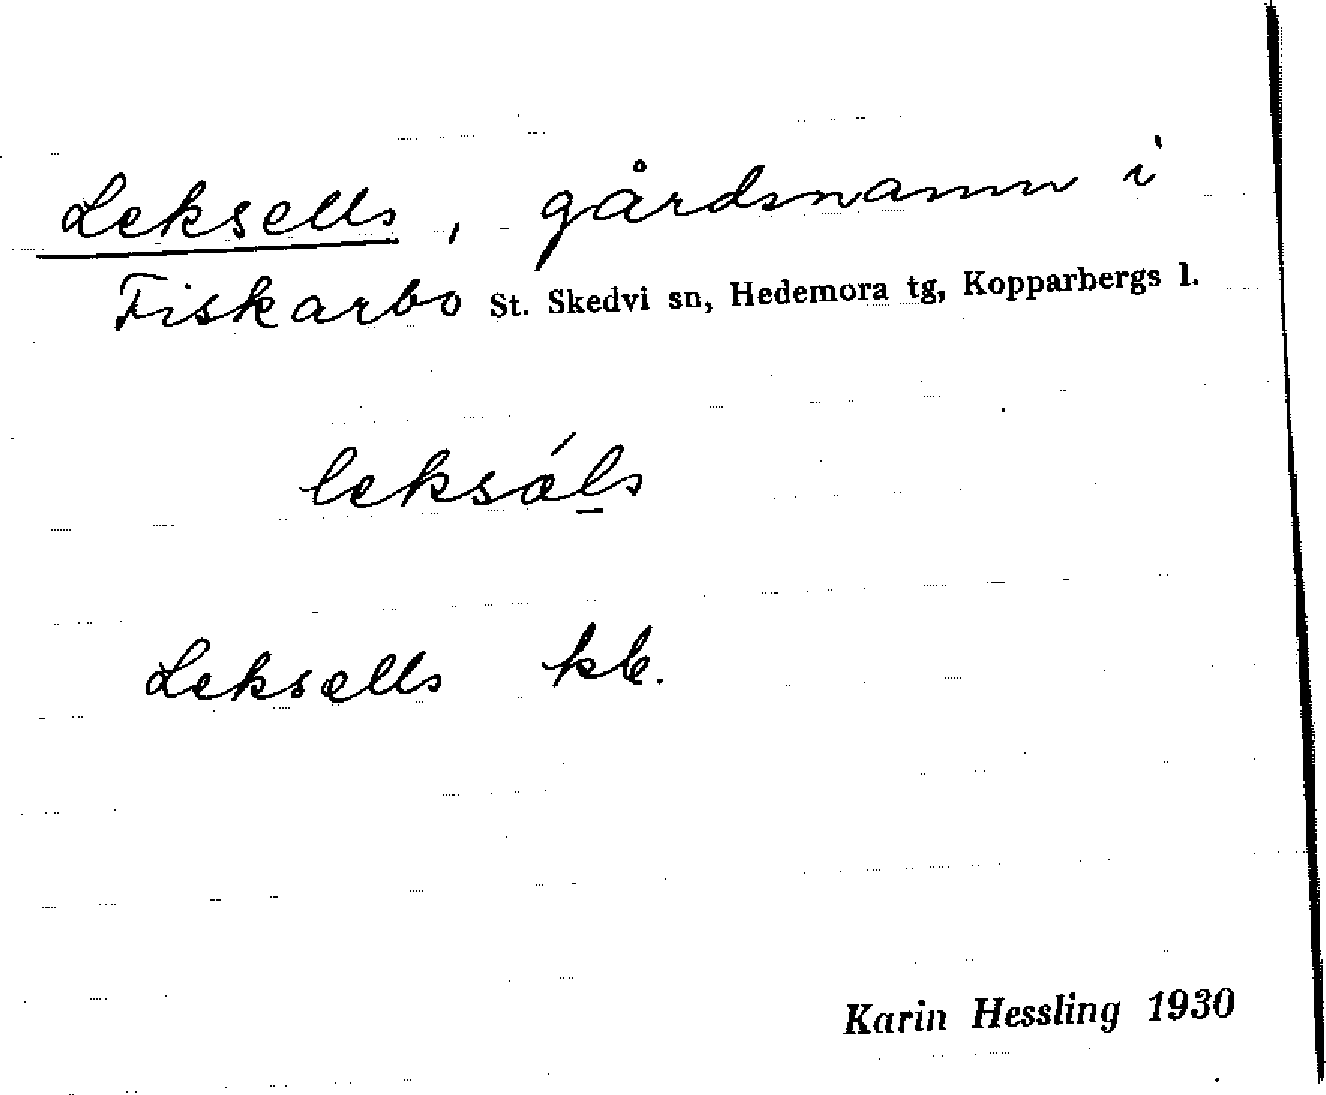 Leksells, gårdsnamn i
Fiskarbo St. Skedvi sn, Hedemora tg, Kopparbergs l.
leksǽls
Leksells kb.
Karin Hessling 1930